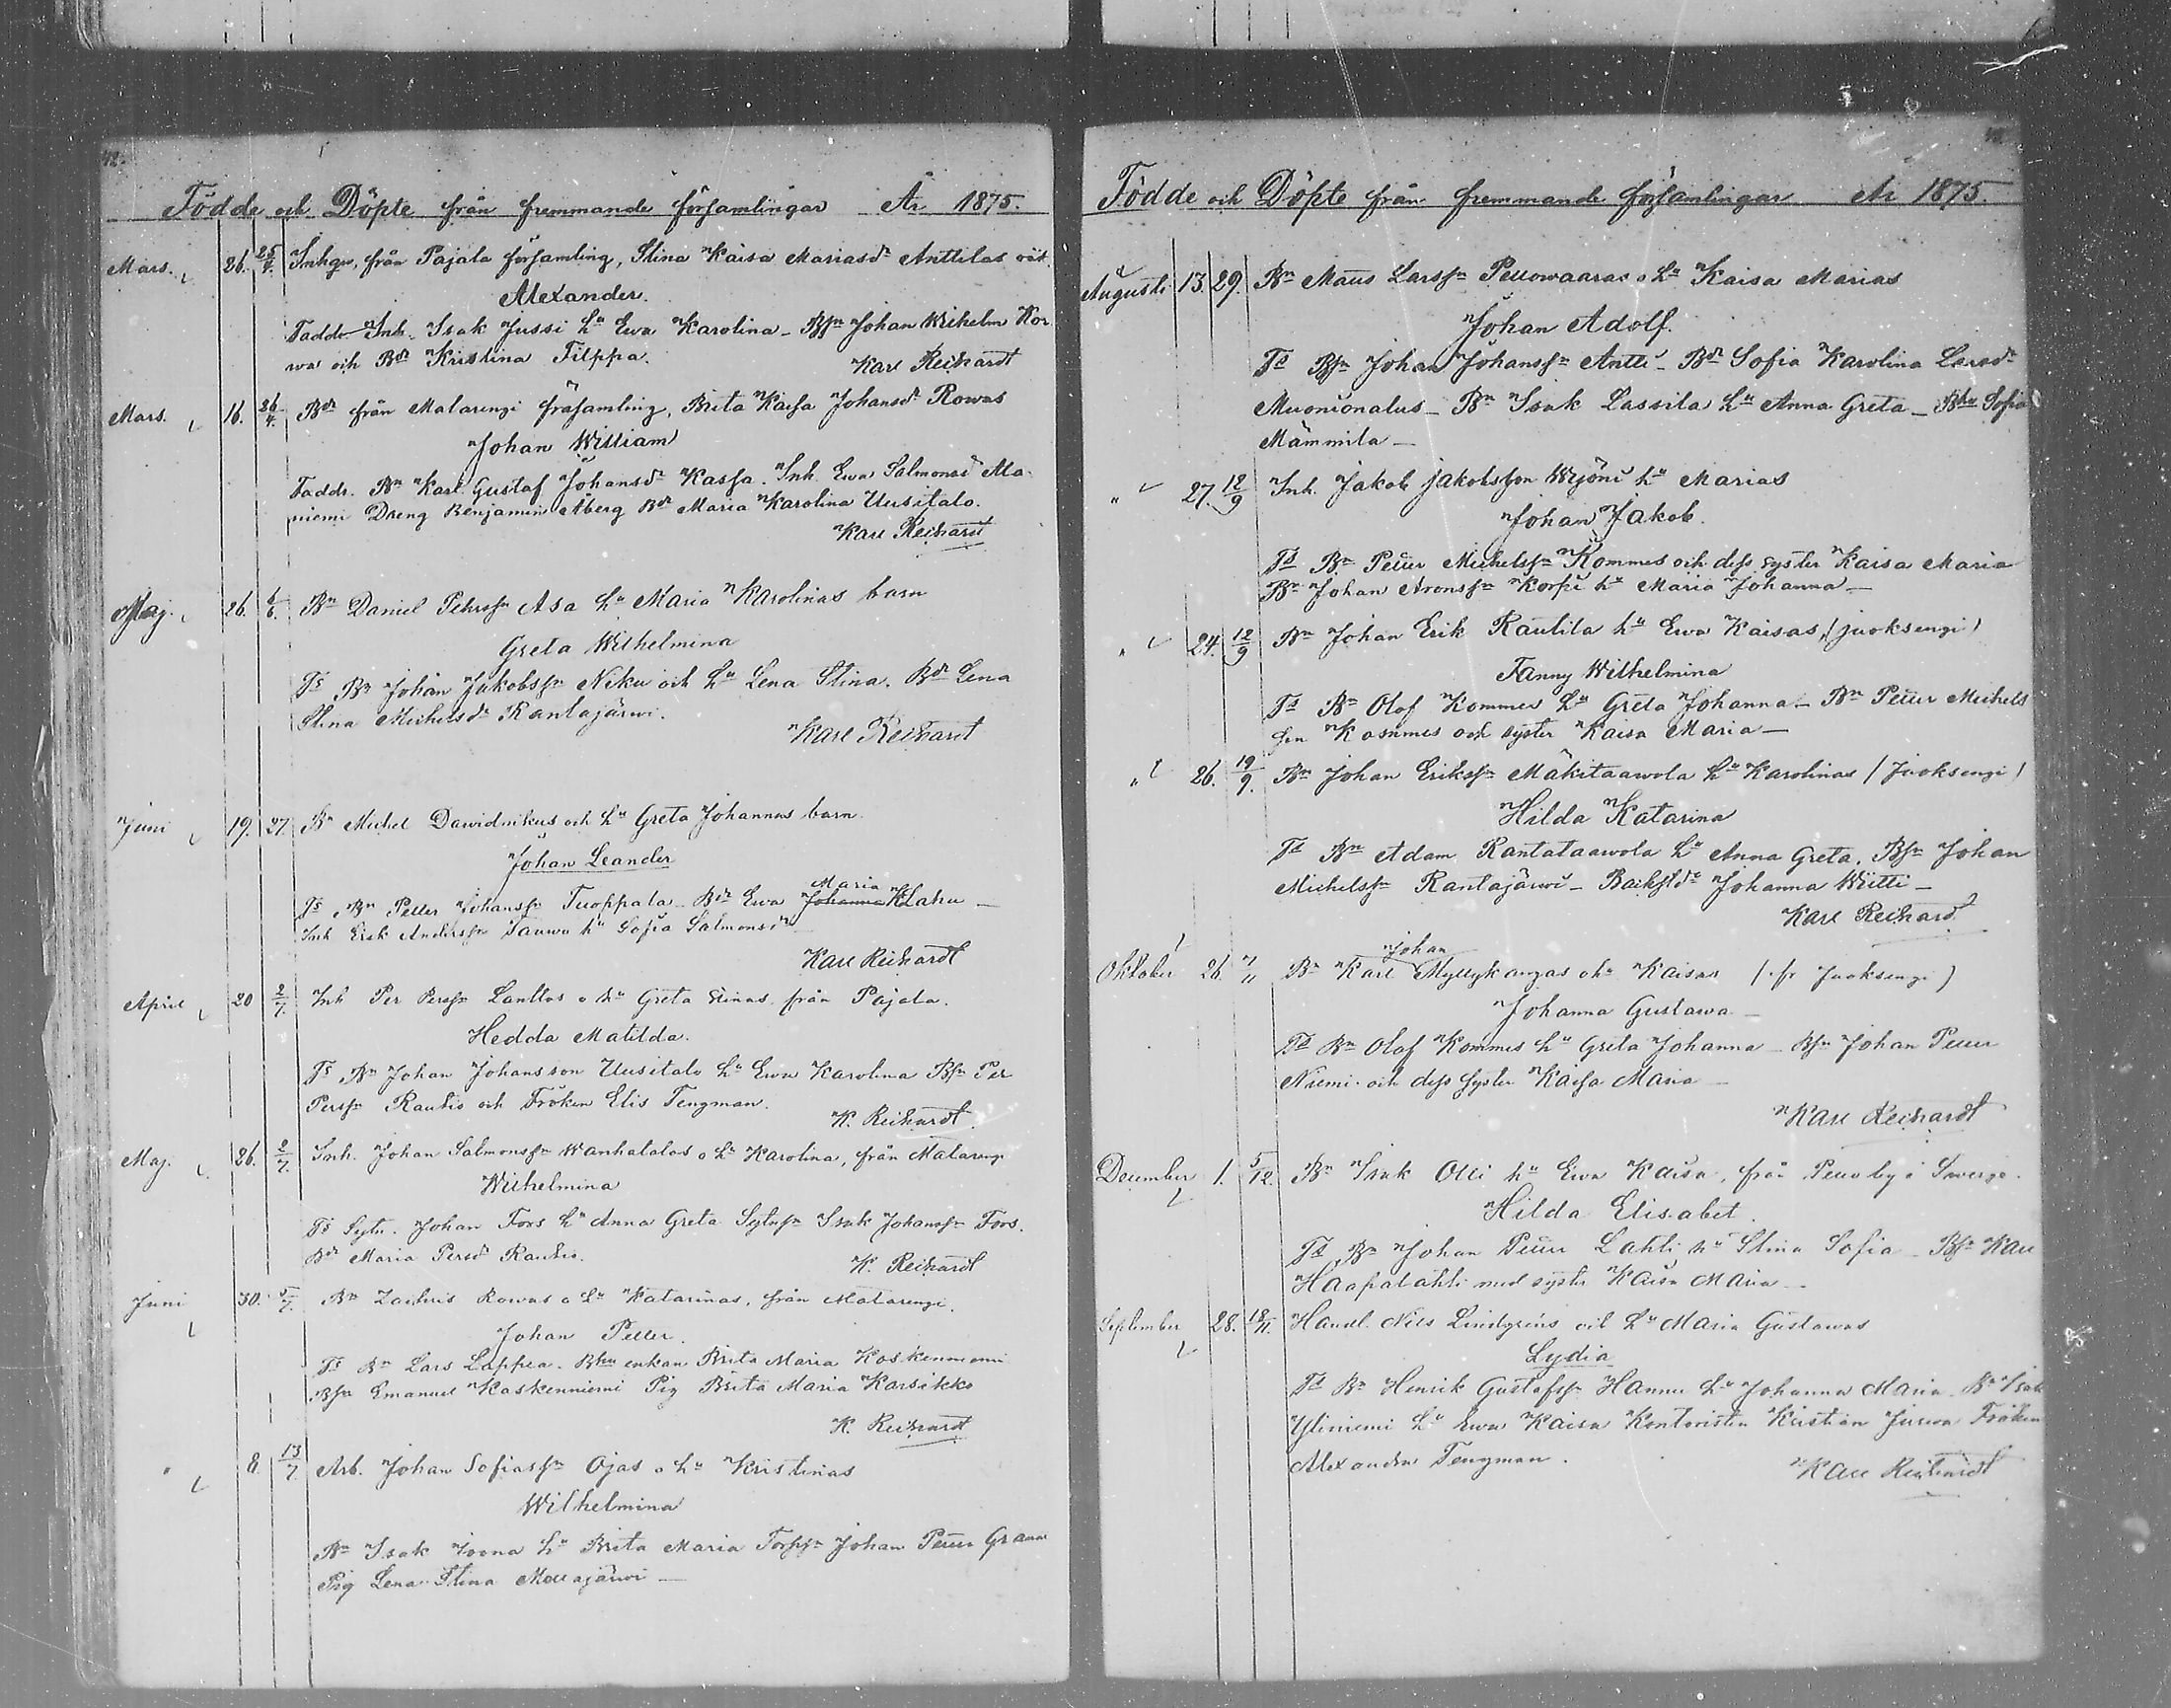 42.
Födde och Döpte från fremmande församlingar År 1875.
Mars. 26. 25/4. Inhgn, från Pajala församling, Stina Kaisa Mariasdr Anttilas oäk.
Alexander.
Faddr Inh. Isak Jussi hu Ewa Karolina - Bsn Johan Wilhelm Kor
wa och Bdr Kristina Filppa. Karl Reikardt
Mars. 16. 26/4. Bdr från Matarengi församling, Brita Kaisa Johansdr Rowas
Johan William
Faddr. Bn Karl Gustaf Johansdr Kassa. Inh. Ewa Salmonsdr Ala-
niemi Dreng Benjamin Åberg Bdr Maria Karolina Uusitalo.
Karl Reikardt
Maj. 26. 6/6. Bn Daniel Pehrssn Asa hu Maria Karolinas barn
Greta Wilhelmina
Fs Bn Johan Jakobssn Niku och hu Lena Stina. Bdr Lena
Stina Michelsdr Rantajärwi.
Karl Reikardt
Juni 19. 27. Bn Michel Dawidnikus och hu Greta Johannas barn
Johan Leander
Maria
Fs Bn Petter Johanssn Tuoppala - Bdr Ewa Johanna Lahu -
Inh Erik Anderssn Sauwo hu Sofia Salmonsdr
Karl Reikardt
April 20 2/7. Inh Per Perssn Lanttos o hu Greta Stinas från Pajala.
Hedda Matilda.
Fs Bn Johan Johansson Uusitalo hu Ewa Karolina Bsn Per
Perssn Rautio och Fröken Elis Tengman.
K. Reikardt.
Maj. 26. 2/7. Inh. Johan Salmonssn Wanhatalos o hu Karolina, från Matarengi
Wilhelmina
Fs Sytn. Johan Fors hu Anna Greta Sytnsn Isak Johanssn Fors.
Bdr Maria Persdr Rautio. K. Reikardt
Juni 30. 5/7. Bn Zachris Rowas o hu Katarinas, från Matarengi.
Johan Petter.
Fs Bn Lars Lappea. Bhu enkan Brita Maria Koskenniemi
Bsn Emanuel Koskenniemi Pig Brita Maria Karsikko
K. Reikardt
" 8. 13/7. Arb. Johan Sofiassn Ojas o hu Kristinas
Wilhelmina
Bn Isak Joona hu Brita Maria Torpsn Johan Petter Grann
Pig Lena Stina Mellajärwi -
Födde och Döpte från fremmande församlingar År 1875.
Augusti 13. 29. Bn Måns Larssn Pellowaaras o hu Kaisa Marias
Johan Adolf.
Fd Bsn Johan Johanssn Antti - Bdr Sofia Karolina Larsdr
Muonionalus - Bn Isak Lassila hu Anna Greta - Bhu Sofia
Mämmilä -
" 27. 12/9 Inh. Jakob Jakobsson Wyöni hu Marias
Johan Jakob.
Fd Bn Petter Michelssn Kommes och dess syster Kaisa Maria
Bn Johan Aronssn Korpi hu Maria Johanna -
" 24. 12/9 Bn Johan Erik Rautila hu Ewa Kaisas, (Juoksengi)
Fanny Wilhelmina
Fd Bn Olof Kommes hu Greta Johanna - Bn Petter Michels
sen Kommes och syster Kaisa Maria -
" 26. 19/9. Bn Johan Erikssn Mäkitaawola hu Karolinas (Juoksengi)
Hilda Katarina
Fd Bn Adam Rantataawola hu Anna Greta. Bsn Johan
Michelssn Rantajärwi - Backstdr Johanna Wiitti -
Karl Reikard
Johan
Oktober 26. 7/11 Bn Karl Myllykangas o hu Kaisas (fr Juoksengi)
Johanna Gustawa -
Fd Bn Olof Kommes hu Greta Johanna - Bsn Johan Petter
Niemi och dess syster Kaisa Maria -
Karl Reikardt
December 1. 5/12. Bn Isak Olli hu Ewa Kaisa, från Pello by i Swerge.
Hilda Elisabet.
Fd Bn Johan Petter Lahti hu Stina Sofia - Bsn Karl
Haapalahti med syster Kaisa Maria -
September 28. 18/11. Handl. Nils Lindgrens och hu Maria Gustawas
Lydia
Fd Bn Henrik Gustafssn Hannu hu Johanna Maria - Bn Isak
Yliniemi hu Ewa Kaisa Kontoristen Kristian Jurwa Fröken
Alexandra Tengman. Karl Reikardt